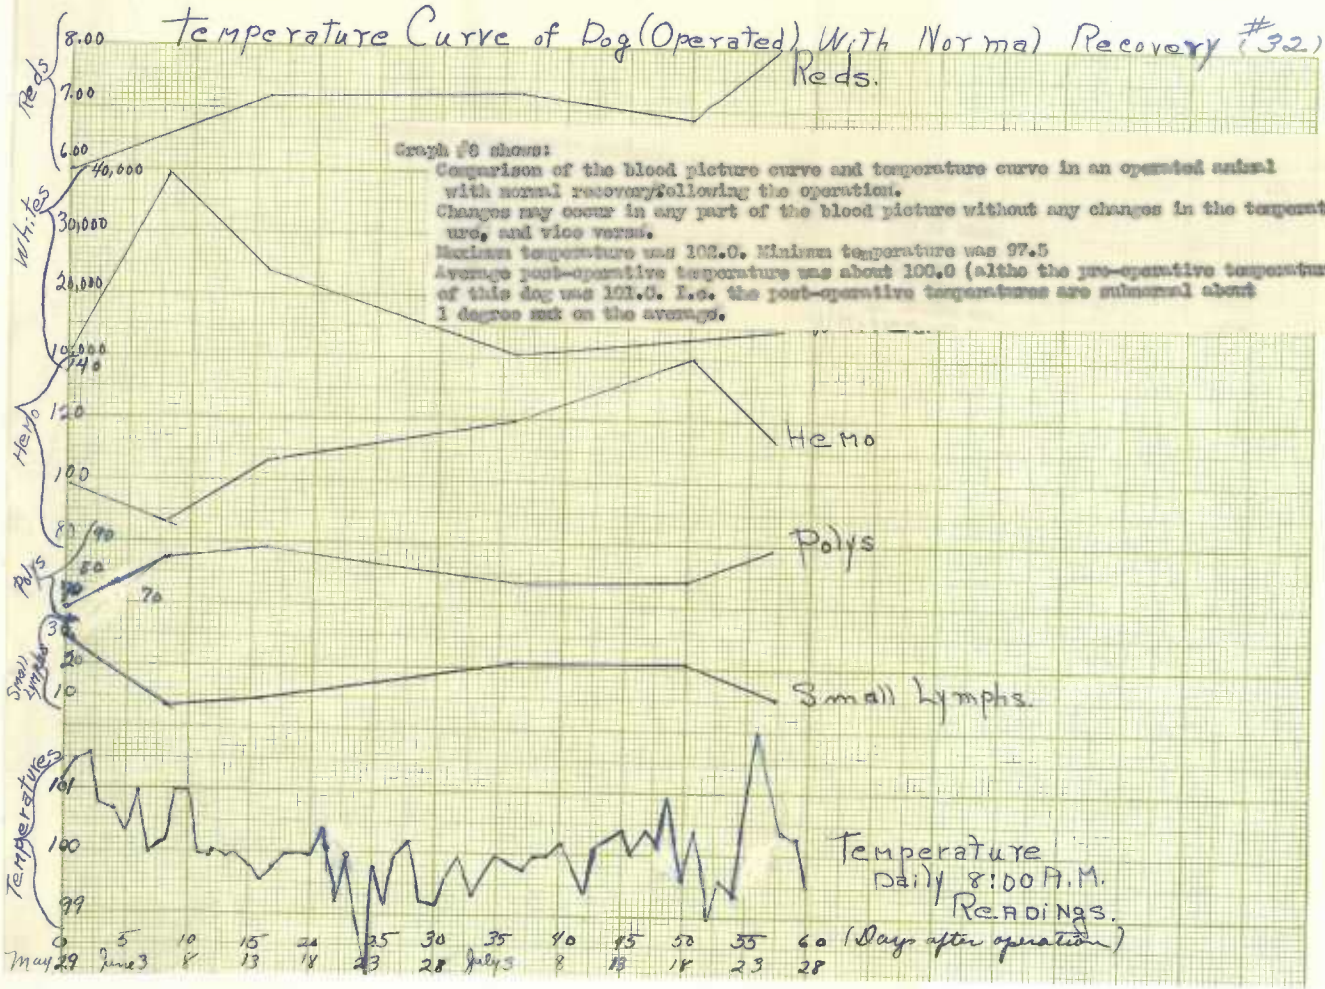 Temperature Curve of Dog (Operated) With Normal Recovery (#32)
Reds
8.00
7.00
6.00
Reds.
Graph #8 shows:
Comparison of the blood picture curve and temperature curve in an operated animal
with normal recovery following the operation.
Changes may occur in any part of the blood picture without any changes in the temperat
ure, and vice versa.
Maximum temperature was 102.0. Minimum temperature was 97.5
Average post-operative temperature was about 100.0 (altho the pre-operative temperature
of this dog was 101.0. I.e. the post-operative temperatures are subnormal about
1 degree on the average.
Whites
40,000
30,000
20,000
10,000
Hemo
140
120
100
80
Hemo
Polys
90
80
70
70
Polys
Small Lymphs
30
20
10
Small Lymphs.
Temperatures
101
100
99
Temperature
Daily 8:00 A.M.
Readings.
0 5 10 15 20 25 30 35 40 45 50 55 60 (Days after operation)
May 29 June 3 8 13 18 23 28 July 3 8 13 18 23 28